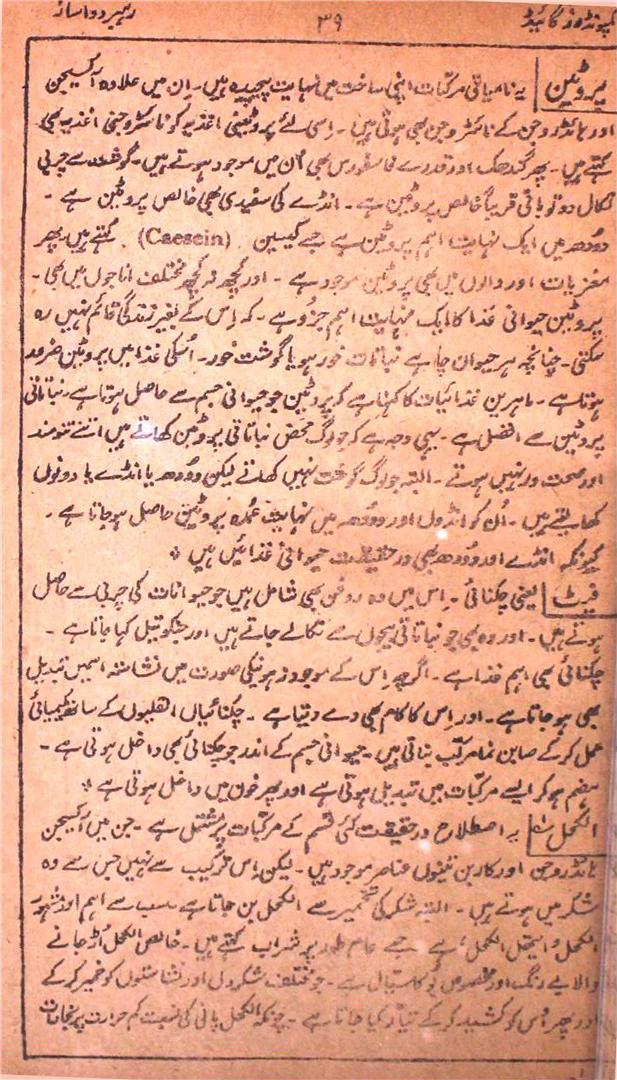 کمپونڈرز گائیڈ ۳۹ رہبر دواساز
پروٹین یہ نامیاتی مرکبات اپنی ساخت میں نہایت پیچیدہ ہیں۔ ان میں علاوہ آکسیجن
اور ہائڈروجن کے نائٹروجن بھی ہوتی ہیں۔ اِسی لئے پروٹینی اغذیہ کو نائٹروجنی اغذیہ بھی
کہتے ہیں۔ پھر گندھک اور قدرے فاسفورس بھی اُن میں موجود ہوتے ہیں۔ گوشت سے چربی
نکال دو تو باقی قریباً خالص پروٹین ہے۔ انڈے کی سفیدی بھی خالص پروٹین ہے۔
دُودھ میں ایک نہایت اہم پروٹین ہے جسے کیسین (Caesein) کہتے ہیں۔ پھر
مغزیات اور دالوں میں بھی پروٹین موجود ہے۔ اور کچھ نہ کچھ مختلف اناجوں میں بھی۔
پروٹین حیوانی غذا کا ایک نہایت اہم جزُو ہے۔ کہ اِس کے بغیر زندگی قائم نہیں رہ
سکتی۔ چنانچہ ہر حیوان چاہے نباتات خور ہو یا گوشت خور۔ اُسکی غذا میں پروٹین ضرور
ہوتا ہے۔ ماہرین غذائیات کا کہنا ہے کہ پروٹین جو حیوانی جسم سے حاصل ہوتا ہے، نباتاتی
پروٹین سے افضل ہے۔ یہی وجہ ہے کہ جو لوگ محض نباتاتی پروٹین کھاتے ہیں اتنے تنومند
اور صحت ور نہیں ہوتے۔ البتہ جو لوگ گوشت نہیں کھاتے لیکن دُودھ یا انڈے یا دونوں
کھا لیتے ہیں۔ اُن کو انڈوں اور دُودھ میں نہایت عُمدہ پروٹین حاصل ہو جاتا ہے۔
کیونکہ انڈے اور دُودھ بھی در حقیقت حیوانی غذائیں ہیں *
فیٹ یعنی چکنائی۔ اِس میں وہ روغن بھی شامل ہیں جو حیوانات کی چربی سے حاصل
ہوتے ہیں۔ اور وہ بھی جو نباتاتی بیجوں سے نکالے جاتے ہیں اور جنکو تیل کہا جاتا ہے۔
چکنائی بھی اہم غذا ہے۔ اگرچہ اِس کے موجود نہ ہونیکی صورت میں نشاستہ اسمیں تبدیل
بھی ہو جاتا ہے۔ اور اِس کا کام بھی دے دیتا ہے۔ چکنائیاں القلیوں کے ساتھ کیمیائی
عمل کر کے صابن نما مرکب بناتی ہیں۔ حیوانی جسم کے اندر جو چکنائی بھی داخل ہوتی ہے۔
ہضم ہو کر ایسے مرکبات میں تبدیل ہوتی ہے اور پھر خون میں داخل ہوتی ہے *
الکحل یہ اصطلاح درحقیقت کئی قسم کے مرکبات پر مشتمل ہے۔ جن میں آکسیجن
ہائڈروجن اور کاربن تینوں عناصر موجود ہیں۔ لیکن اِس ترکیب سے نہیں جس سے وہ
شکر میں ہوتے ہیں۔ البتہ شکر کی تخمیر سے الکحل بن جاتا ہے۔ سب سے اہم اور مشہور
الکحل، ایتھل الکحل، ہے جسے عام طور پر شراب کہتے ہیں۔ خالص الکحل اُڑ جانے
والا بے رنگ اور مخصوص بُو کا سیال ہے۔ جو مختلف شکروں اور نشاستوں کو خمیر کر کے
اور پھر اُس کو کشید کر کے تیار کیا جاتا ہے۔ چونکہ الکحل پانی کی نسبت کم حرارت پر بخارات